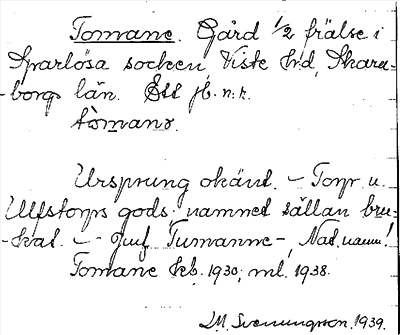 Tomane. Gård 1/2 frälse i
Sparlösa socken Viste hd, Skara-
-borgs län. Ett jb. n:r.
tòmanə.
Ursprung okänt. — Torp u.
Ulfstorps gods. namnet sällan bru-
-kat. — Jmf Tumanne-, Nat. namn!
Tomane Ek. 1930, ml. 1938.
L.M. Svenungsson. 1939.